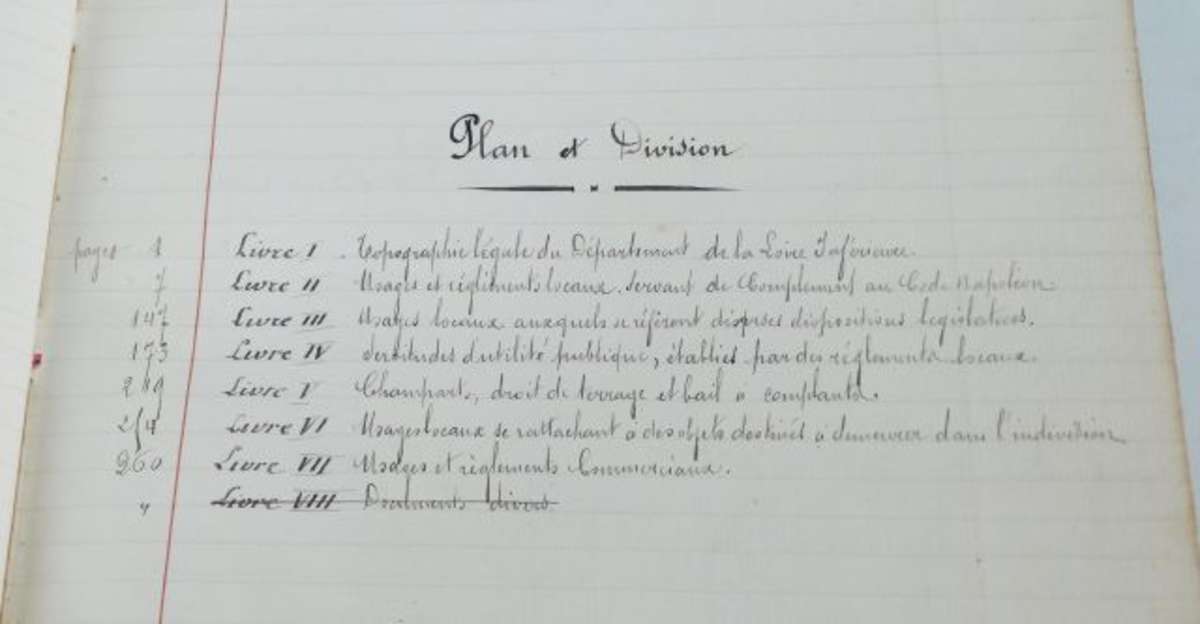 Plan et Division
pages 1 Livre I. Topographie légale du Département de la Loire Inférieure.
7 Livre II Usages et réglements locaux servant de Complément au Code Napoléon.
147 Livre III Usages locaux auxquels se réfèrent diverses dispositions législatives.
173 Livre IV Servitudes d'utilité publique, établies par des réglements locaux.
Livre V Champarts, droit de terrage et bail à complants.
Livre VI Usages locaux se rattachant à des objets destinés à demeurer dans l'indivision
260 Livre VII Usages et réglements Commerciaux.
" Livre VIII Documents divers